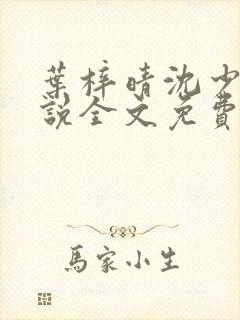 葉梓晴沈少
說全文免費
馬家小生